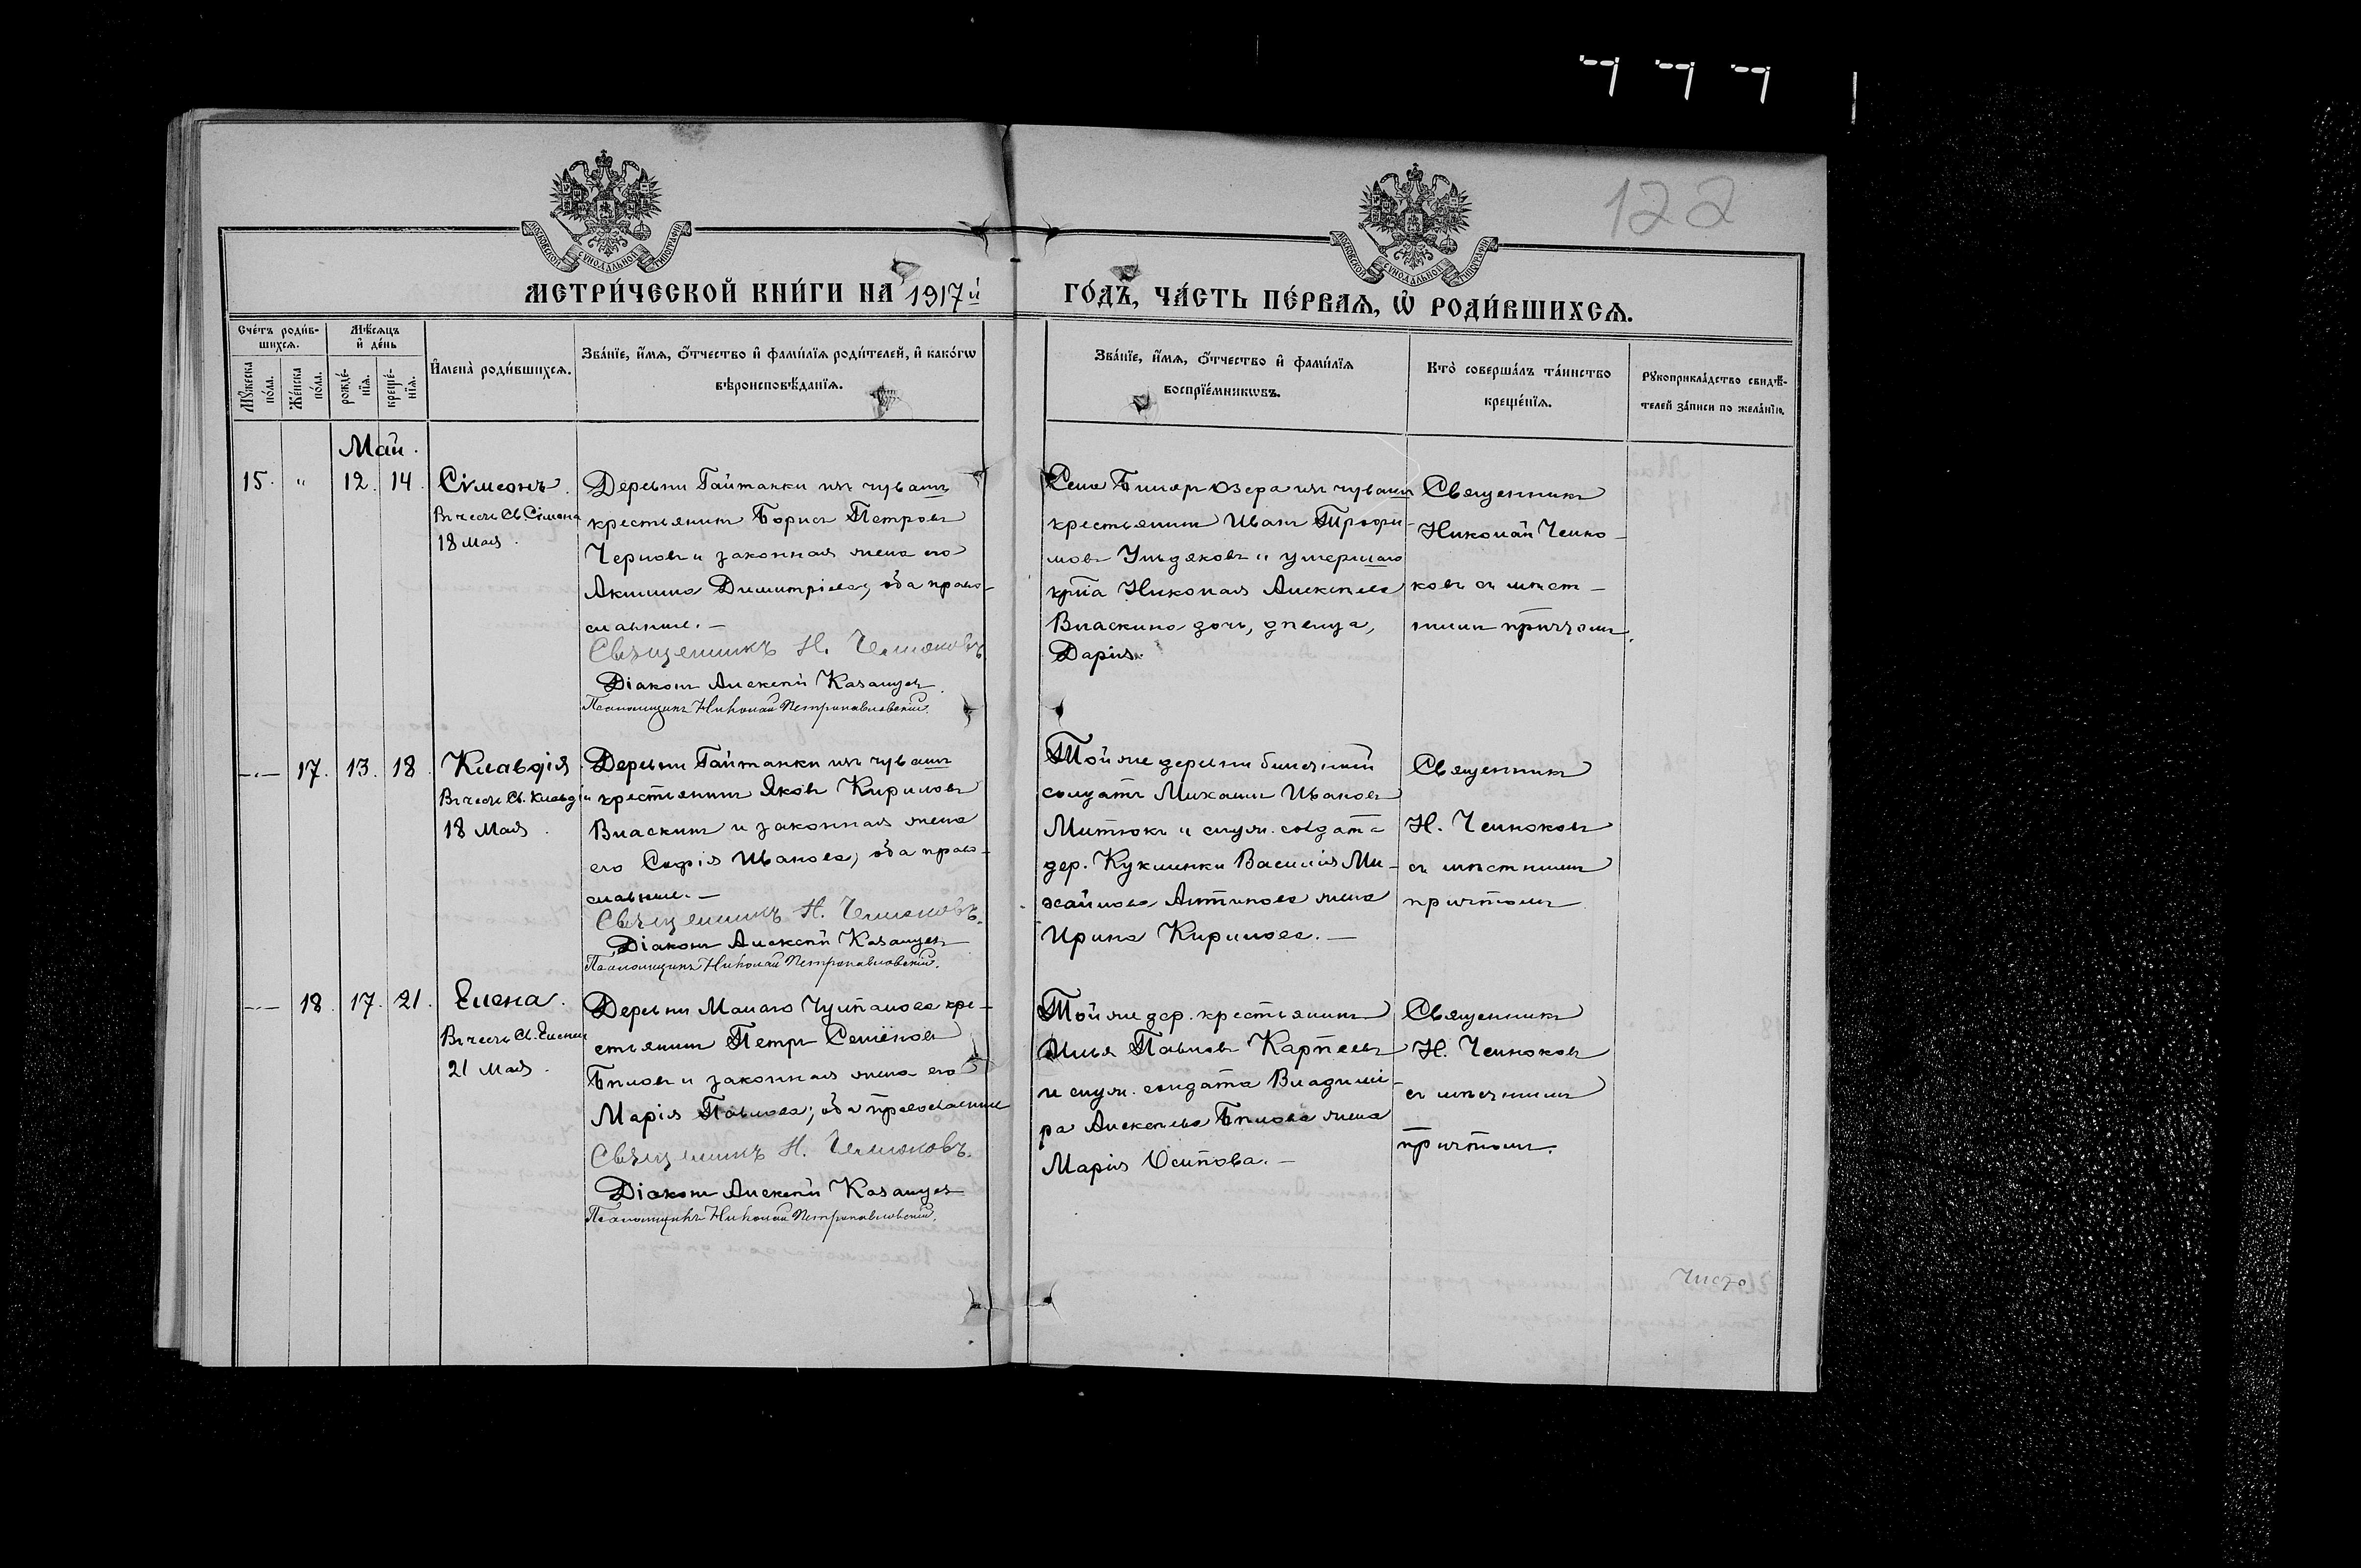 122
МОСКОВСКОЙ СѴНОДАЛЬНОЙ ТИПОГРАФІИ
МОСКОВСКОЙ СѴНОДАЛЬНОЙ ТИПОГРАФІИ
МЕТРИ́ЧЕСКОЙ КНИ́ГИ НА 1917й
ГО́ДЪ, ЧА́СТЬ ПЕ́РВАѦ, Ѡ РОДИ́ВШИХСѦ.
Сче́тъ роди́в-
шихсѧ.
Мꙋ́жеска по́ла.
Же́нска по́ла.
Мѣ́сѧцъ и҆ де́нь
рожде́-
нїѧ.
креще́-
нїѧ.
И҆мена̀ роди́вшихсѧ.
Зва́нїе, и҆́мѧ, ѻ҆́тчество и҆ фами́лїѧ роди́телей, и҆ како́гѡ
вѣроисповѣ́данїѧ.
Зва́нїе, и҆́мѧ, ѻ҆́тчество и҆ фами́лїѧ
воспрїе́мникѡвъ.
Кто̀ соверша́лъ та́инство
креще́нїѧ.
Рꙋкоприкла́дство свидѣ́-
телей за́писи по жела́нїю.
Май.
15. " 12. 14. Сѵмеонъ.
Въ честь Св. Сѵмеона
18 Мая.
Деревни Гайтанки изъ чувашъ
крестьянинъ Борисъ Петровъ
Черновъ и законная жена его
Акилина Димитріева, оба право-
славные.—
Священникъ Н. Чемоковъ.
Діаконъ Алексѣй Казанцев.
Псаломщикъ Николай Петропавловскій.
Села Биляр Юзера изъ чувашъ
крестьянинъ Иванъ Трофи-
мовъ Ульдяковъ и умершаго
кр̃на Николая Алексѣева
Власкина дочь, дѣвица,
Дарія.
Священникъ
Николай Чемо-
ковъ съ мѣст-
нымъ причтомъ.
— 17. 13. 18. Клавдія.
Въ честь Св. Клавдіи
18 Мая.
Деревни Гайтанки изъ чувашъ
крестьянинъ Яковъ Кириловъ
Власкинъ и законная жена
его Софія Иванова, оба право-
славные.—
Священникъ Н. Чемоковъ.
Діаконъ Алексѣй Казанцев
Псаломщикъ Николай Петропавловскій.
Той же деревни
солдатъ Михаилъ Ивановъ
Митюкъ и служ. солдата
дер. Кукшинки Василія Ми-
хайлова Антипова жена
Ирина Кирилова.—
Священникъ
Н. Чемоковъ
съ мѣстнымъ
причтомъ
— 18. 17. 21. Елена.
Въ честь Св. Елены
21 Мая.
Деревни Малаго Чулпанова кре-
стьянинъ Петръ Семёновъ
Бѣловъ и законная жена его
Марія Павлова, оба православные
Священникъ Н. Чемоковъ.
Діаконъ Алексѣй Казанцев
Псаломщикъ Николай Петропавловскій.
Той же дер. крестьянинъ
Илья Павловъ Карпеевъ
и служ. солдата Владимі-
ра Алексѣева Бѣлова жена
Марія Осипова.—
Священникъ
Н. Чемоковъ
съ мѣстнымъ
причтомъ.
Чисто